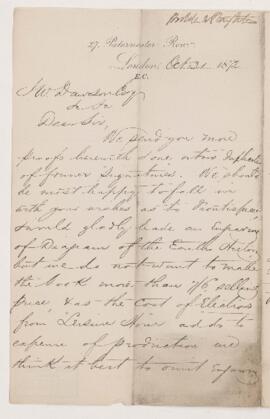 27, Paternoster Row
London, Oct 1872
E.C.
J W Dawson Esq
Dear Sir,
We send you more
proofs herewith & one extra duplicate
of former signatures. We should
be most happy to fall in
with your wishes as to Frontispiece
should gladly have an
of Diagram of the Earth's History
but we do not want to make
the book more than 7/6 selling
price, & as the cost of
from "Leisure Hour" add to
expense of production we
think it best to omit